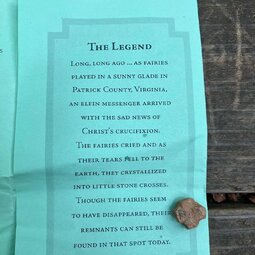 The Legend
Long, long ago ... as fairies
played in a sunny glade in
Patrick County, Virginia,
an elfin messenger arrived
with the sad news of
Christ's crucifixion.
The fairies cried and as
their tears fell to the
earth, they crystallized
into little stone crosses.
Though the fairies seem
to have disappeared, their
remnants can still be
found in that spot today.